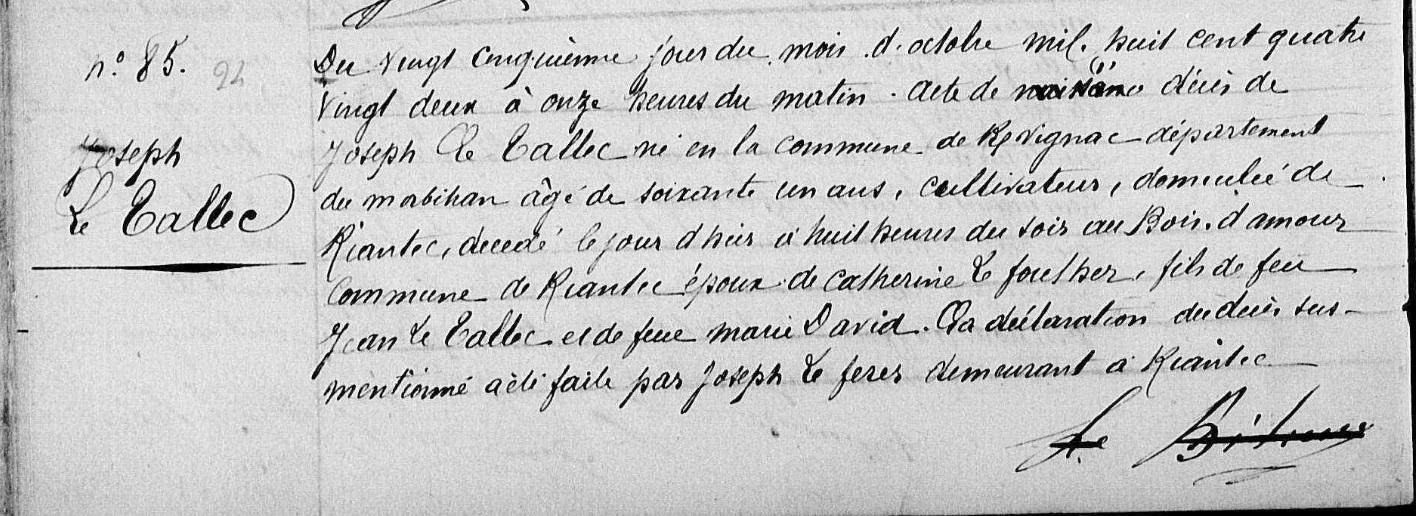 n.° 85. 92
Joseph
Le Tallec
Du Vingt cinquième jour du mois d'octobre mil huit cent quatre
Vingt deux à onze heures du matin. Acte de décès de
Joseph Le Tallec né en la commune de Kvignac département
du morbihan âgé de soixante un ans, cultivateur, domicilié de
Riantec, décédé le jour d'hier à huit heures du soir au Bois d'amour
Commune de Riantec époux de Catherine Le , fils de feu
Jean Le Tallec et de feue marie David. La déclaration du décès sus-
mentionné a été faite par Joseph Le ferer demeurant à Riantec
Le